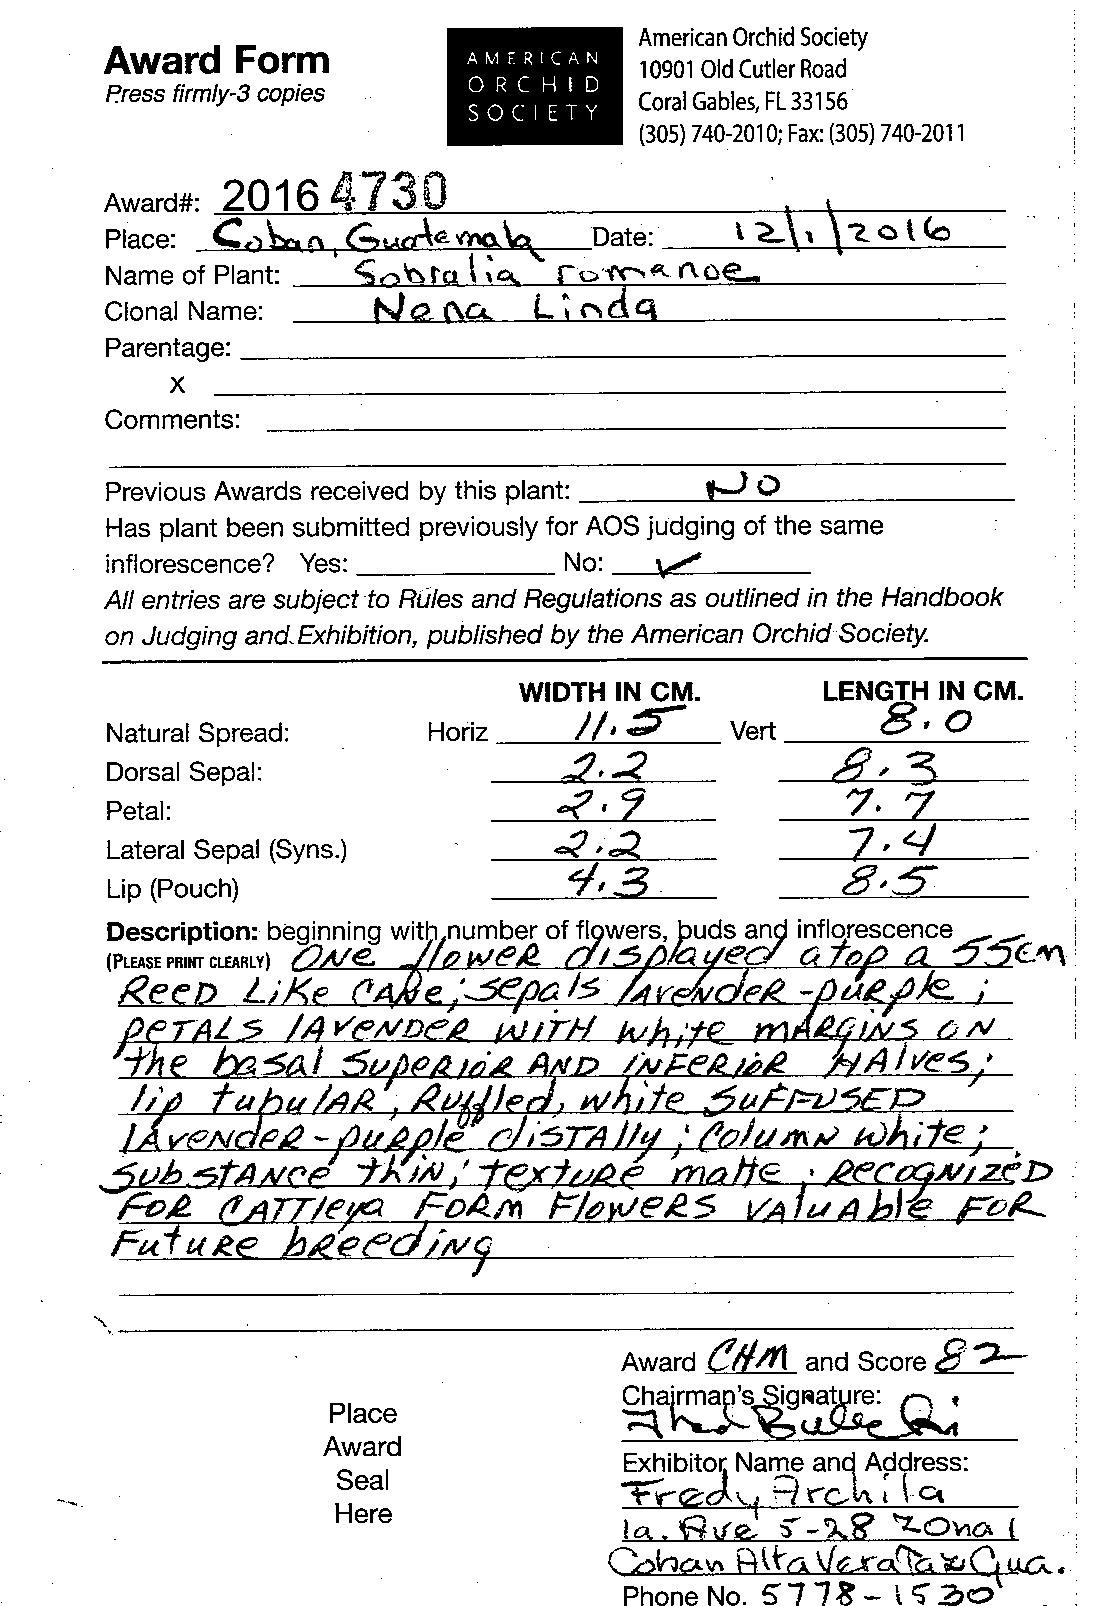 Award Form
Press firmly-3 copies
AMERICAN
ORCHID
SOCIETY
American Orchid Society
10901 Old Cutler Road
Coral Gables, FL 33156
(305) 740-2010; Fax: (305) 740-2011
Award#: 2016 4730
Place: Coban, Guatemala Date: 12/1/2016
Name of Plant: Sobralia romanoe
Clonal Name: Nena Linda
Parentage:
X
Comments:
Previous Awards received by this plant: NO
Has plant been submitted previously for AOS judging of the same
inflorescence? Yes: No: ✓
All entries are subject to Rules and Regulations as outlined in the Handbook
on Judging and Exhibition, published by the American Orchid Society.
WIDTH IN CM. LENGTH IN CM.
Natural Spread: Horiz 11.5 Vert 8.0
Dorsal Sepal: 2.2 8.3
Petal: 2.9 7.7
Lateral Sepal (Syns.) 2.2 7.4
Lip (Pouch) 4.3 8.5
Description: beginning with number of flowers, buds and inflorescence
(PLEASE PRINT CLEARLY) ONe flower displayed atop a 55cm
Reed Like CANe; sepals lavender-purple;
petals lavender with white margins on
the basal superior and inferior halves;
lip tubular, Ruffled, white suffused
lavender-purple distally; column white;
substance thin; texture matte; recognized
for Cattleya form flowers valuable for
future breeding
Award CHM and Score 82
Chairman's Signature:
Place
Award
Seal
Here
Exhibitor Name and Address:
Fredy Archila
1a. Ave 5-28 Zona 1
Coban Alta Verapaz Gua.
Phone No. 5778-1530